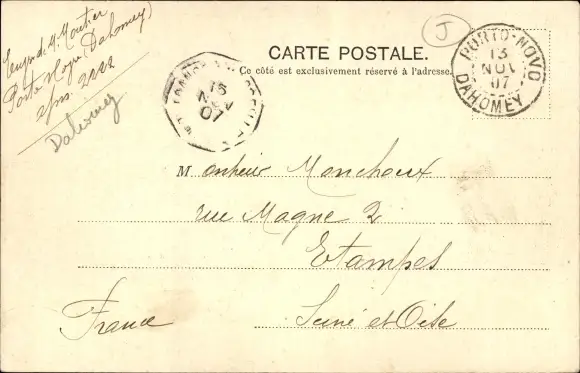 Porto Novo (Dahomey)
Dahomey
J
CARTE POSTALE.
Ce côté est exclusivement réservé à l'adresse.
PORTO-NOVO
13
NOV
07
DAHOMEY
15
NOV
07
Monsieur Monchoux
rue Magne 2
Etampes
Seine et Oise
France